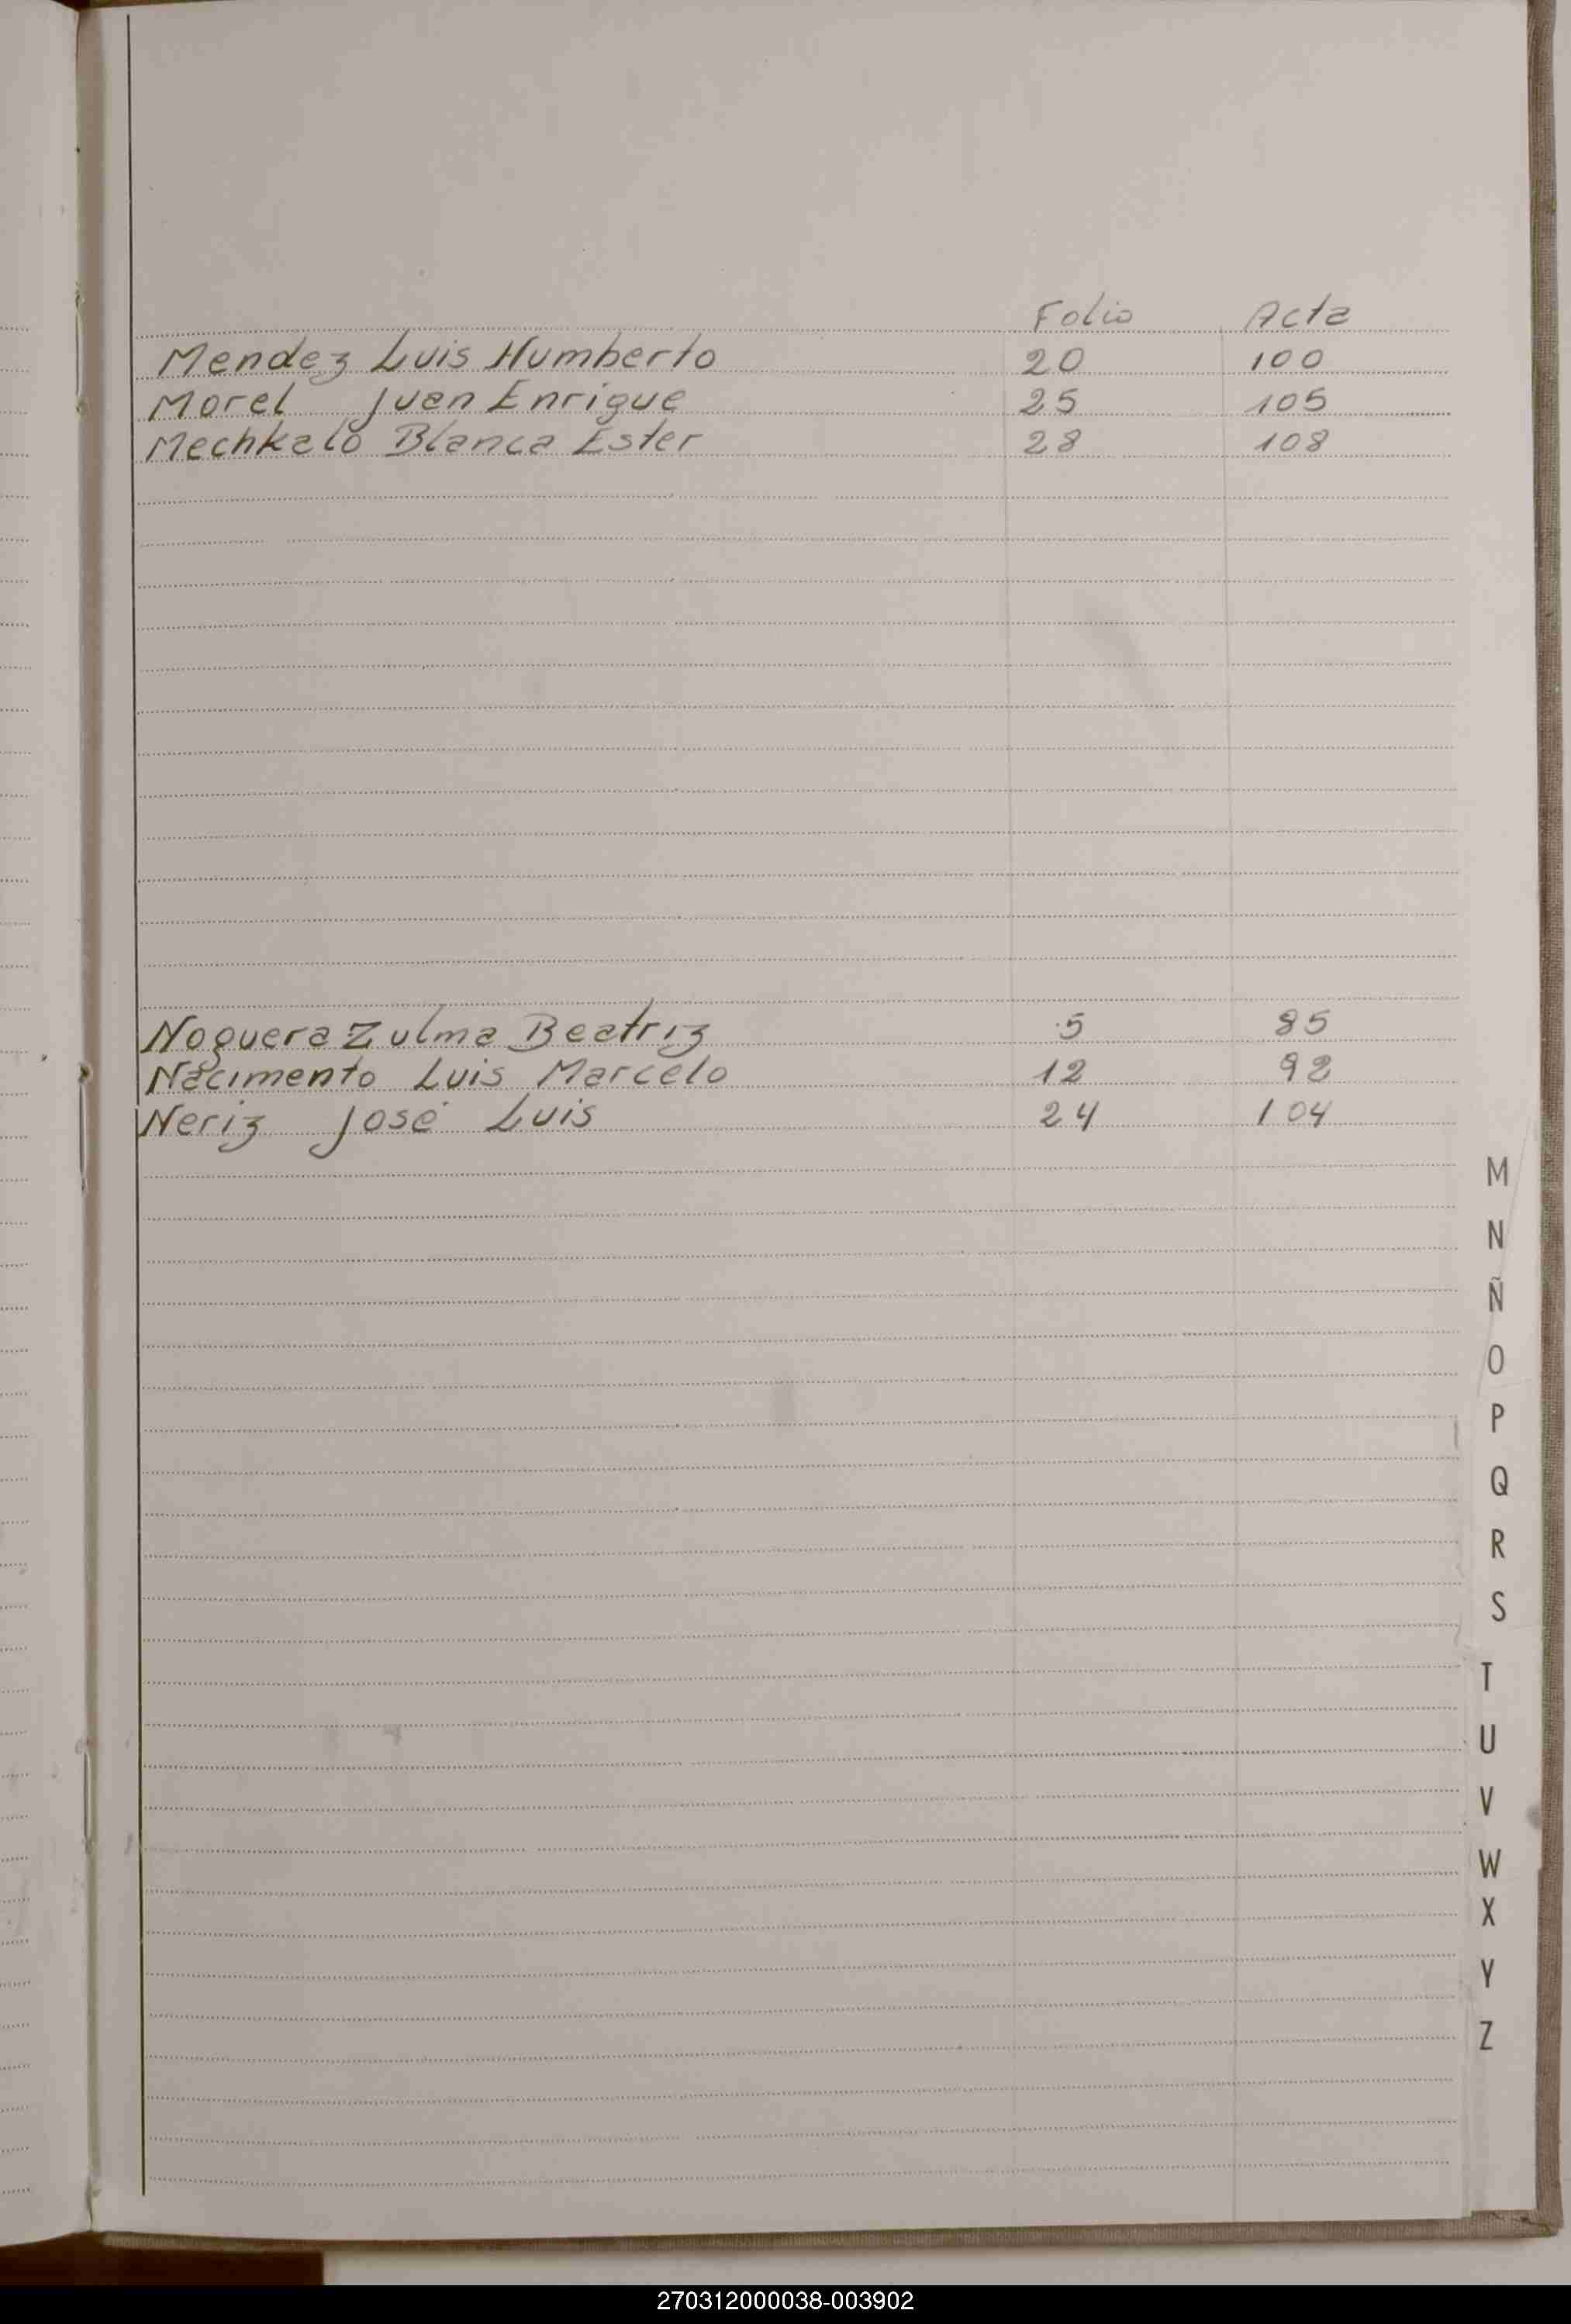 Folio Acta
Mendez Luis Humberto 20 100
Morel Juan Enrique 25 105
Mechkalo Blanca Ester 28 108
Noguera Zulma Beatriz 5 85
Nacimento Luis Marcelo 12 92
Neriz José Luis 24 104
M
N
Ñ
O
P
Q
R
S
T
U
V
W
X
Y
Z
270312000038-003902